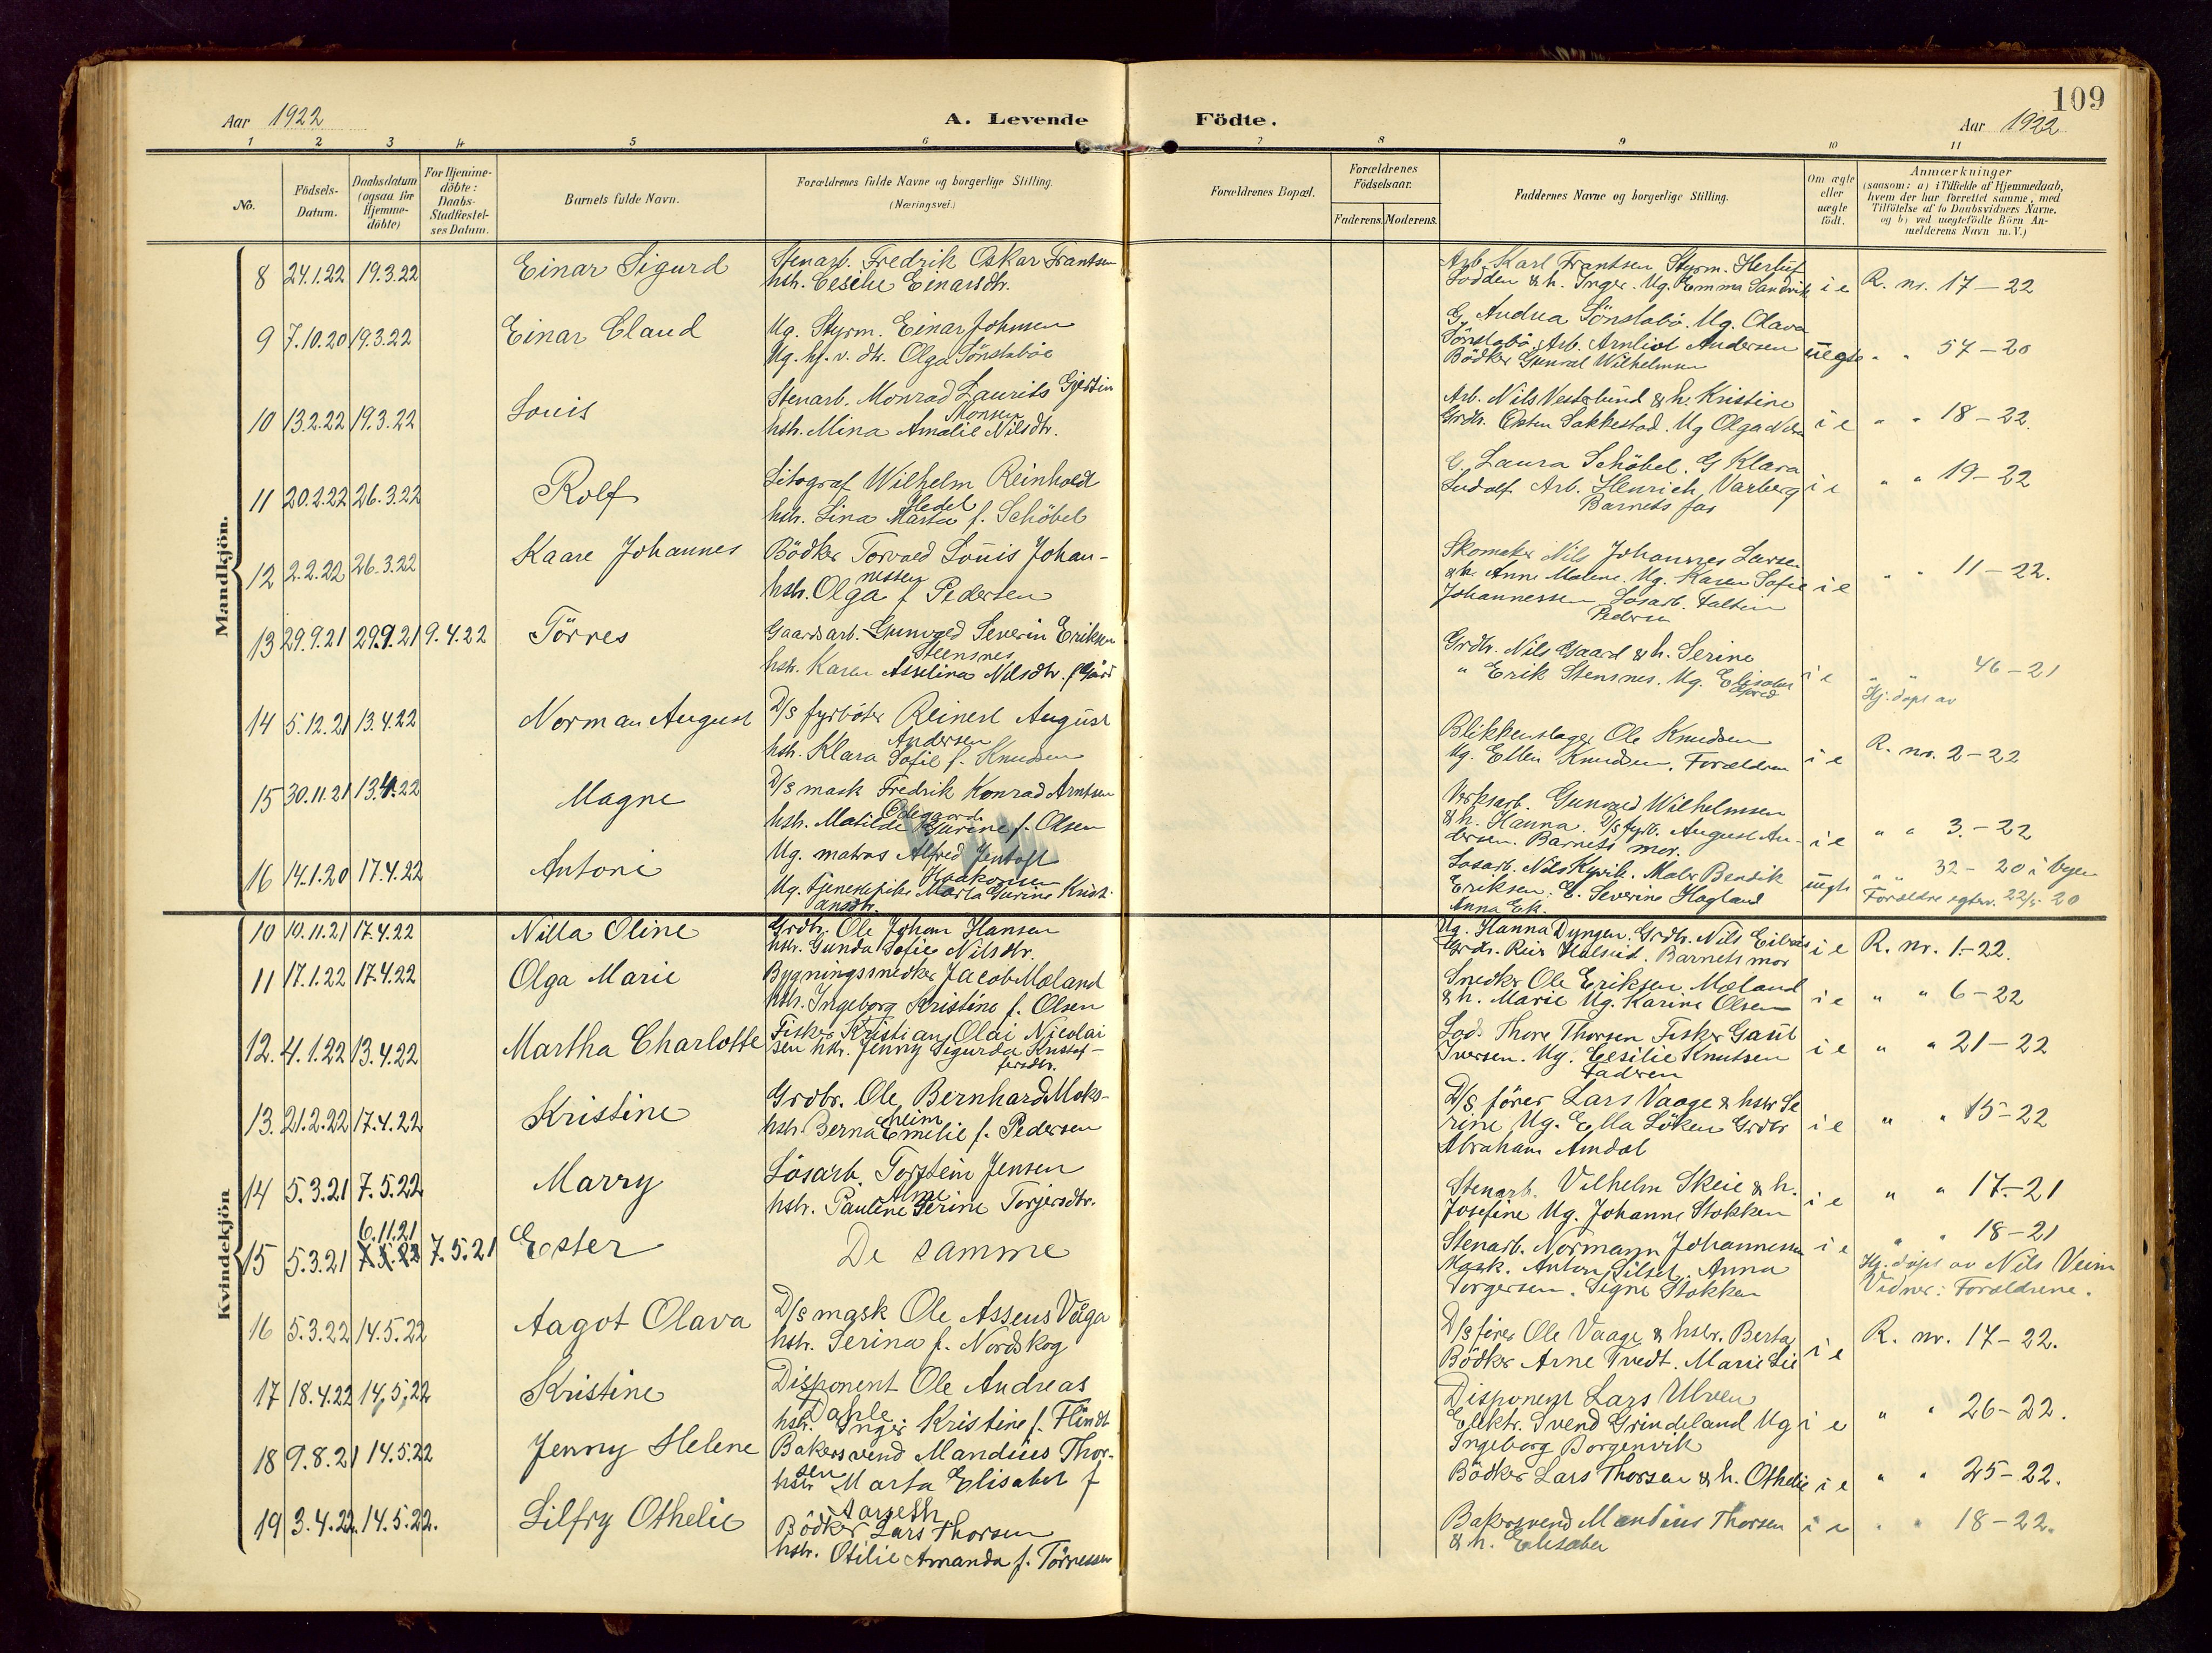 109
Aar 1922
A. Levende Födte.
Aar 1922
1 2 3 4 5 6 7 8 9 10 11
No.
Födsels-
Datum.
Daabsdatum
(ogsaa for
Hjemme-
döbte)
For Hjemme-
döbte:
Daabs-
Stadfæstel-
ses Datum.
Barnets fulde Navn.
Forældrenes fulde Navne og borgerlige Stilling.
(Næringsvei.)
Forældrenes Bopæl.
Forældrenes
Födselsaar.
Faderens. Moderens.
Faddernes Navne og borgerlige Stilling.
Om ægte
eller
uægte
födt.
Anmærkninger
(saasom: a) i Tilfælde af Hjemmedaab,
hvem der har forrettet samme, med
Tilföielse af to Daabsvidners Navne.
og b) ved uægtefödte Börn An-
melderens Navn m. V.)
Mandkjön.
8 24.1.22 19.3.22 Einar Sigurd
Stenarb. Fredrik Oskar Frantsen
hstr. Cesilie Einarsdtr.
Arb. Karl Frantsen Styrm. Herluf
Lodden & h. Inger. Ug. Emma Sandvik
i e R. nr. 17-22
9 7.10.20 19.3.22 Einar Claud
Ug. Styrm. Einar Johnsen
Ug. hj. v. dtr. Olga Sönstaböe
G. Andrea Sönstabö. Ug. Olava
Sönstabö. Arb. Arnliot Andersen
Bödker Gunval Wilhelmsen
uegte " " 57-20
10 13.2.22 19.3.22 Louis
Stenarb. Monrad Laurits Gjertin
Monsen
hstr. Mina Amalie Nilsdtr.
Arb. Nils Vesterlund & h. Kristine
Grdbr. Östen Sakkestad. Ug Olga
i e " " 18-22.
11 20.2.22 26.3.22 Rolf
Litograf Wilhelm Reinholdt
Hedel
hstr. Lina Marta f. Schöbel
Laura Schöbel. G Klara
Ludolf Arb. Henrich Varberg
Barnets far
i e " " 19-22
12 2.2.22 26.3.22 Kaare Johannes
Bödker Torvald Louis Johan-
nessen
hstr. Olga f Pedersen
Skomaker Nils Johannes Larsen
& h. Anne Malene. Ug. Karen Sofie
Johannessen Losarb. Faltin
Pedersen
i e " " 11-22.
13 29.9.21 29.9.21 9.4.22 Törres
Gaardsarb. Gunvald Severin Eriksen
Steensnes
hstr. Karen Asselina Nilsdtr. f Gård
Grdbr. Nils Gaard & h. Serine
" Erik Stensnes. Ug. Elisabet
i e " " 46-21
Hj. döpt av
14 5.12.21 13.4.22 Norman August
D/s fyrböter Reinert August
Andersen
hstr. Klara Sofie f. Knudsen
Blikkenslager Ole Knudsen
Ug. Ellen Knudsen. Forældrene
i e R. nr. 2-22
15 30.11.21 13.4.22 Magne
D/s mask Fredrik Konrad Arntsen
Ödegaard
hstr. Matilde Gurine f. Olsen
Verksarb. Gunvald Wilhelmsen
& h. Hanna. D/s fyrb. August An-
dersen. Barnets mor.
i e " " 3.-22
16 14.1.20 17.4.22 Antoni
Ug. matros Alfred Jentoft
Haakonsen
Ug. tjenestepike Marta Gurine Krist-
iansdtr.
Losarb. Nils Kyvik. Maler Bendik
Eriksen. E. Severine Hagland
Anna Ek.
uegte " " 32-20 i byen
Forældre egtev. 22/5 20
Kvindekjön
10 10.11.21 17.4.22 Nilla Oline
Grdbr. Ole Johan Hansen
hstr. Gunda Sofie Nilsdtr.
Ug. Hanna Dyngen. Grdbr. Nils
Grdbr. Reir. Barnets mor
i e R. nr. 1.-22.
11 17.1.22 17.4.22 Olga Marie
Bygningssnedker Jacob Mæland
hstr. Ingeborg Kristine f. Olsen
Snedker Ole Eriksen Mæland
& h. Marie Ug. Karine Olsen
i e " " 6-22
12. 4.1.22 13.4.22 Martha Charlotte
Fisker Kristian Olai Nicolai
sen hstr. Jenny Sigurda Kristof-
fersdtr.
Lods Thore Thorsen Fisker Gaut
Iversen. Ug. Cesilie Knutsen
Faderen
i e " " 21-22
13. 21.2.22 17.4.22 Kristine
Grdbr. Ole Bernhard Moks-
heim
hstr. Berna Emelie f. Pedersen
D/s förer Lars Vaage & hstr Se
rine Ug. Ella Löken Grdbr
Abraham Amdal
i e " " 15-22
14 5.3.21 7.5.22 Marry
Lösarb. Torstein Jensen
Alme
hstr. Pauline Serine Torgersdtr.
Stenarb. Vilhelm Skeie & h.
Josefine Ug. Johanne Stokken
i e " " 17.-21
15 5.3.21 6.11.21 7.5.22 7.5.21 Ester
De samme
Stenarb. Normann Johannessen
Mask. Anton Silset. Anna
Torgersen. Signe Stokken
i e " " 18-21
Hj. döpt av Nils Veim
Vidner: Forældrene.
16 5.3.22 14.5.22 Aagot Olava
D/s mask Ole Asseus Våga
hstr. Serina f. Nordskog
D/s förer Ole Vaage & hstr. Berta
Bödker Arne Tvedt. Marie Lie
i e R. nr. 17-22.
17 18.4.22 14.5.22 Kristine
Disponent Ole Andreas
Dahle
hstr. Inger Kristine f. Flindt
Disponent Lars Ulven
Elektr. Svend Grindeland Ug
Ingeborg Borgenvik
i e " " 26-22.
18 9.8.21 14.5.22 Jenny Helene
Bakersvend Mandius Thor-
sen
hstr Marta Elisabet f
Aarseth.
Bödker Lars Thorsen & h. Othelie
i e " " 25-22.
19 3.4.22. 14.5.22. Lilfry Othelie
Bödker Lars Thorsen
hstr. Otilie Amanda f. Törressen
Bakersvend Mandius Thorsen
& h. Elisabet
i e " " 18-22.